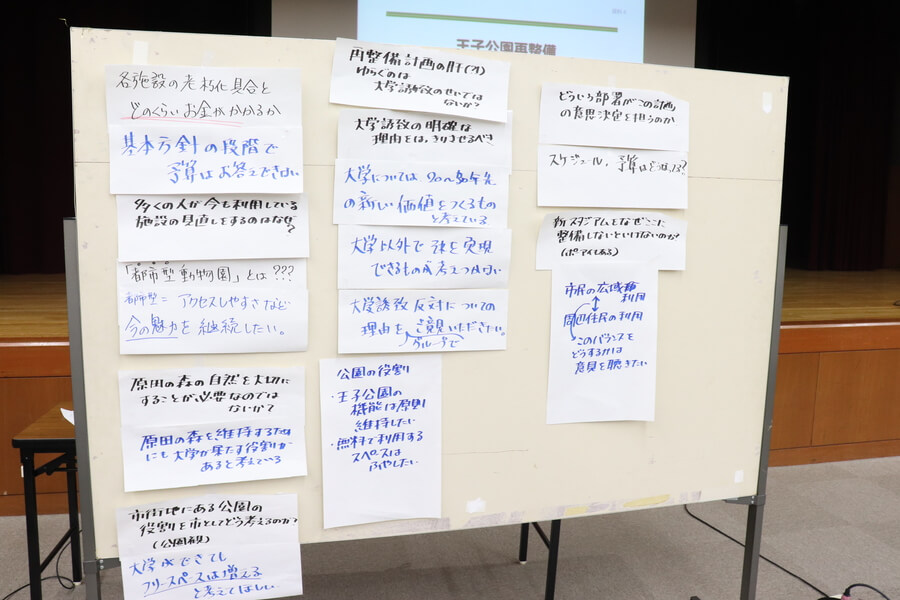 王子公園再整備
各施設の老朽化具合と
どのくらいお金がかかるか
基本方針の段階で
予算はお答えできない
多くの人が今も利用している
施設の見直しをするのはなぜ?
「都市型動物園」とは???
都市型=アクセスしやすさなど
今の魅力を継続したい。
原田の森の自然を大切に
することが必要なのでは
ないか?
原田の森を維持するため
にも大学が果たす役割が
あると考えている
市街地にある公園の
役割を市としてどう考えるのか?
(公園観)
大学ができても
フリースペースは増える
と考えてほしい
再整備計画の
ゆらぐのは
大学誘致のせいでは
ないか?
大学誘致の明確な
理由をはっきりさせるべき
大学については 20〜30年先
の新しい価値をつくるもの
と考えている
大学以外で 実現
できるものが考えつかない
大学誘致反対についての
理由をご意見いただきたい。
グループで
公園の役割
・王子公園の
機能は原則
維持したい
・無料で利用する
スペースは
ふやしたい
どういう部署がこの計画
の意思決定を担うのか
スケジュール、予算はどうなってる?
新スタジアムをなぜここに
整備しないといけないのか?
(ポーアイもある)
市民の広域利用
↕
周辺住民の利用
このバランスを
どうするかは
意見を聴きたい